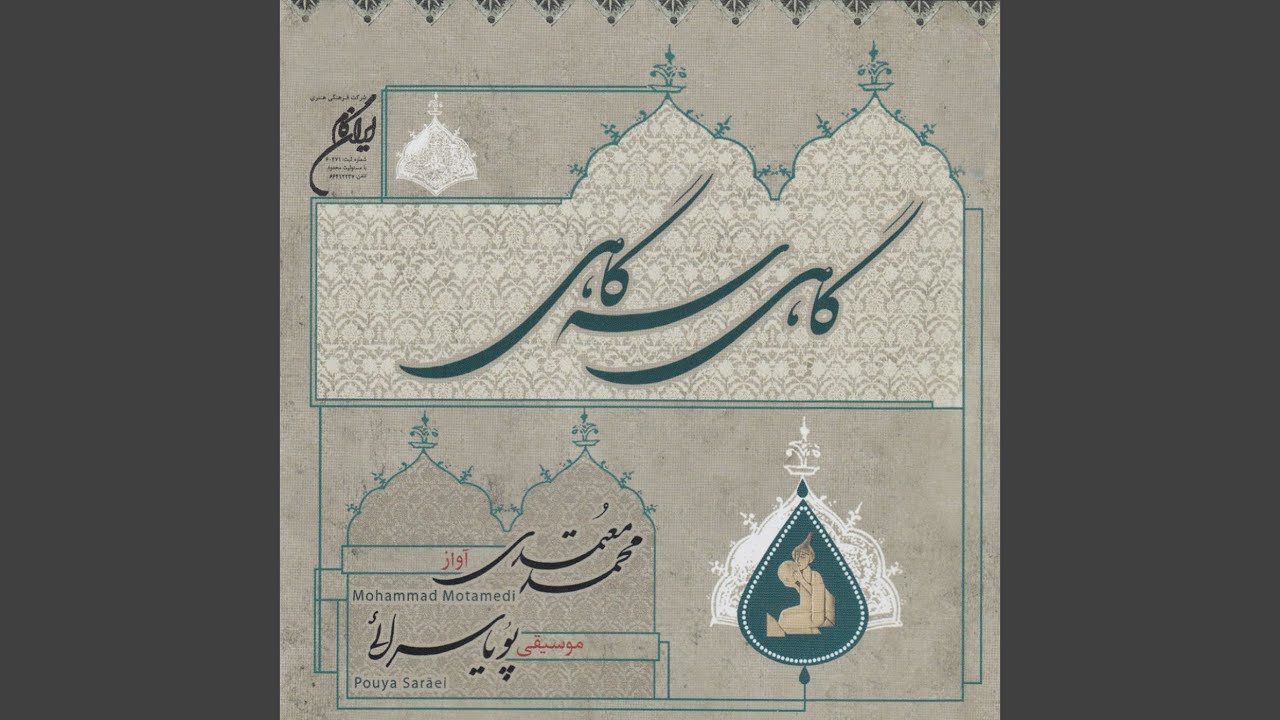 شرکت فرهنگی هنری
ایران گام
شماره ثبت: ۶۰۲۷۱
با مسئولیت محدود
تلفن: ۶۶۴۱۲۲۳۷
گاهی سه گاهی
محمد معتمدی
آواز
Mohammad Motamedi
پویا سرائی
موسیقی
Pouya Saraei